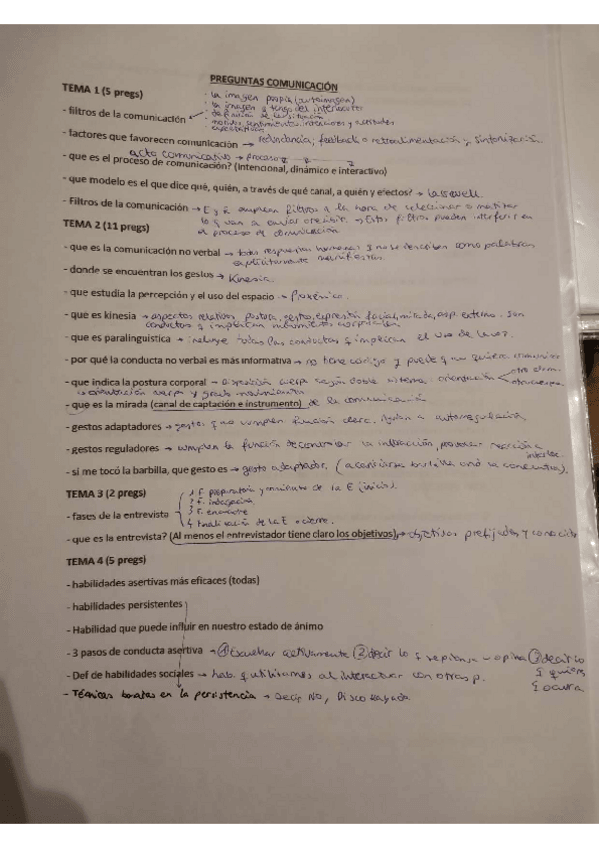 PREGUNTAS COMUNICACIÓN
TEMA 1 (5 pregs)
· la imagen propia (autoimagen)
· la imagen q tengo del interlocutor
· definición de la situación
· motivos, sentimientos, intenciones y actitudes
· expectativas
- filtros de la comunicación
- factores que favorecen comunicación → redundancia, feedback o retroalimentación y sintonización
acto comunicativo → proceso
- que es el proceso de comunicación? (Intencional, dinámico e interactivo)
- que modelo es el que dice qué, quién, a través de qué canal, a quién y efectos? → Lasswell
- Filtros de la comunicación → E y R emplean filtros a la hora de seleccionar o matizar
lo q van a enviar o recibir → Estos filtros pueden interferir en
el proceso de comunicación
TEMA 2 (11 pregs)
- que es la comunicación no verbal → todas respuestas humanas q no se describen como palabras
explícitamente manifiestas
- donde se encuentran los gestos → Kinesia.
- que estudia la percepción y el uso del espacio → Proxémica.
- que es kinesia → aspectos relativos postura, gestos, expresión facial, mirada, asp. externo. Son
conductas q implican movimientos corporales
- que es paralinguistica → incluye todas las conductas q implican el uso de la voz.
- por qué la conducta no verbal es más informativa → no tiene código y puede q no quiera comunicar
- que indica la postura corporal → disposición cuerpo según doble sistema orientación
orientación cuerpo y grado movimiento
- que es la mirada (canal de captación e instrumento) de la comunicación
- gestos adaptadores → gestos q no cumplen función clara. Ayudan a autorregulación
- gestos reguladores → cumplen la función de controlar la interacción, provocar reacción a
interloc.
- si me tocó la barbilla, que gesto es → gesto adaptador. (acariciarse barbilla uno la concentra).
TEMA 3 (2 pregs)
1 F. preparatoria y comienzo de la E (inicio).
2 F. indagación
3 F.
4 Finalización de la E o cierre.
- fases de la entrevista
- que es la entrevista? (Al menos el entrevistador tiene claro los objetivos) → objetivos prefijados y conocidos
TEMA 4 (5 pregs)
- habilidades asertivas más eficaces (todas)
- habilidades persistentes
- Habilidad que puede influir en nuestro estado de ánimo
- 3 pasos de conducta asertiva → ① Escuchar activamente ② decir lo q se piensa u opina ③ decir lo
q quiero
q ocurra
- Def de habilidades sociales → hab. q utilizamos al interactuar con otras p.
- Técnicas basadas en la persistencia → Decir NO, Disco Rayado